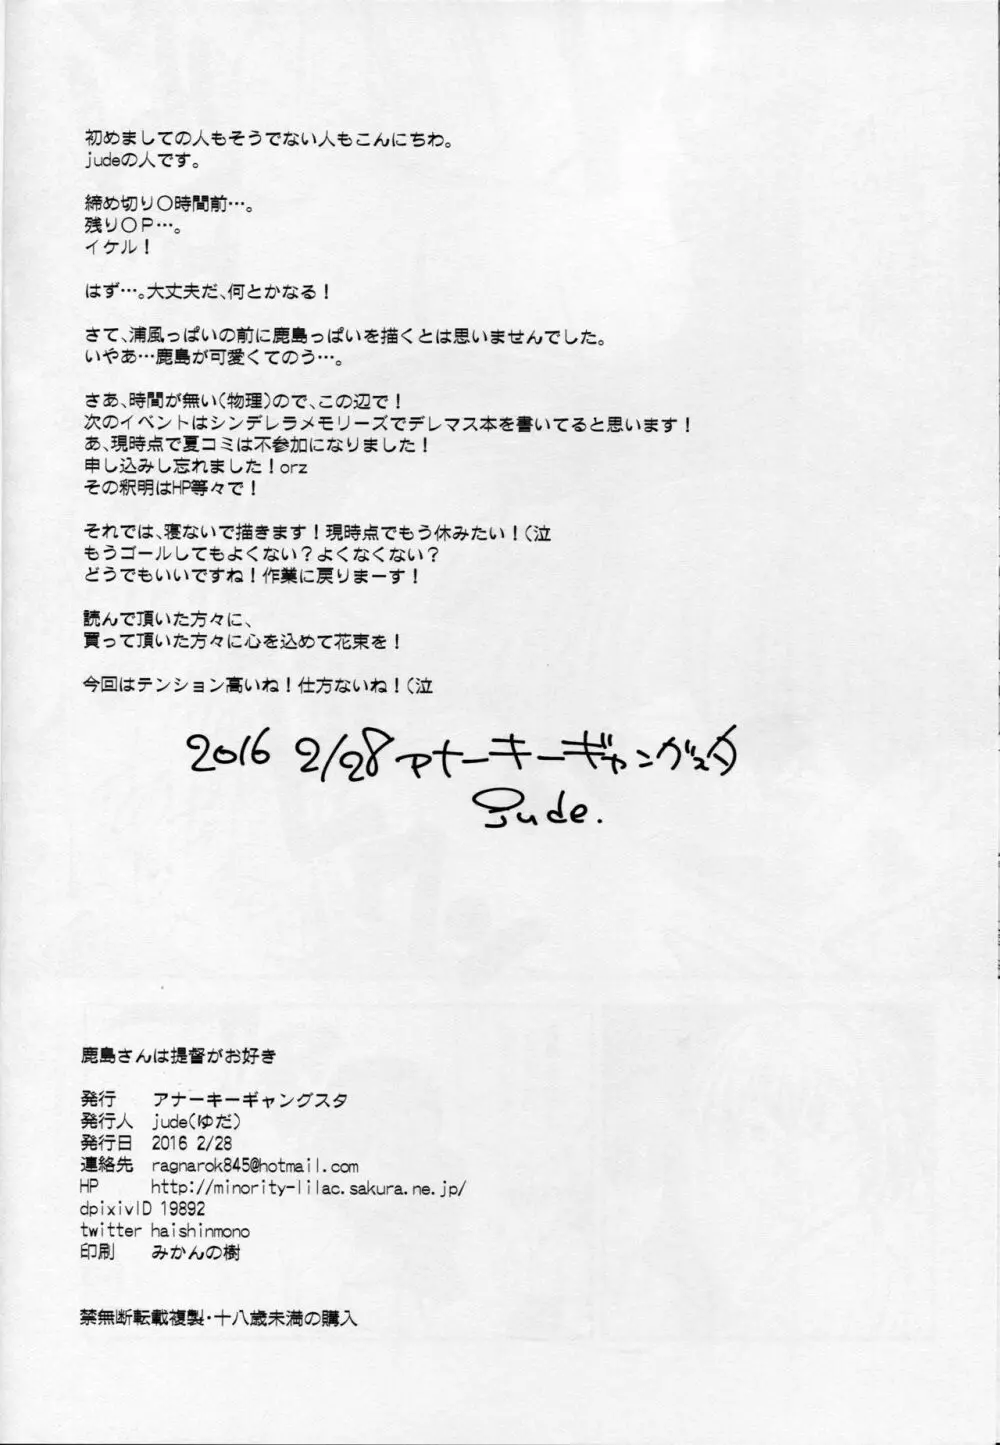 初めましての人もそうでない人もこんにちわ。
judeの人です。
締め切り〇時間前…。
残り〇P…。
イケル！
はず…。大丈夫だ、何とかなる！
さて、浦風っぱいの前に鹿島っぱいを描くとは思いませんでした。
いやあ…鹿島が可愛くてのう…。
さあ、時間が無い（物理）ので、この辺で！
次のイベントはシンデレラメモリーズでデレマス本を書いてると思います！
あ、現時点で夏コミは不参加になりました！
申し込みし忘れました！orz
その釈明はHP等々で！
それでは、寝ないで描きます！現時点でもう休みたい！（泣
もうゴールしてもよくない？よくなくない？
どうでもいいですね！作業に戻りまーす！
読んで頂いた方々に、
買って頂いた方々に心を込めて花束を！
今回はテンション高いね！仕方ないね！（泣
2016 2/28 アナーキーギャングスタ
jude.
鹿島さんは提督がお好き
発行 アナーキーギャングスタ
発行人 jude（ゆだ）
発行日 2016 2/28
連絡先 ragnarok845@hotmail.com
HP http://minority-lilac.sakura.ne.jp/
dpixivID 19892
twitter haishinmono
印刷 みかんの樹
禁無断転載複製・十八歳未満の購入